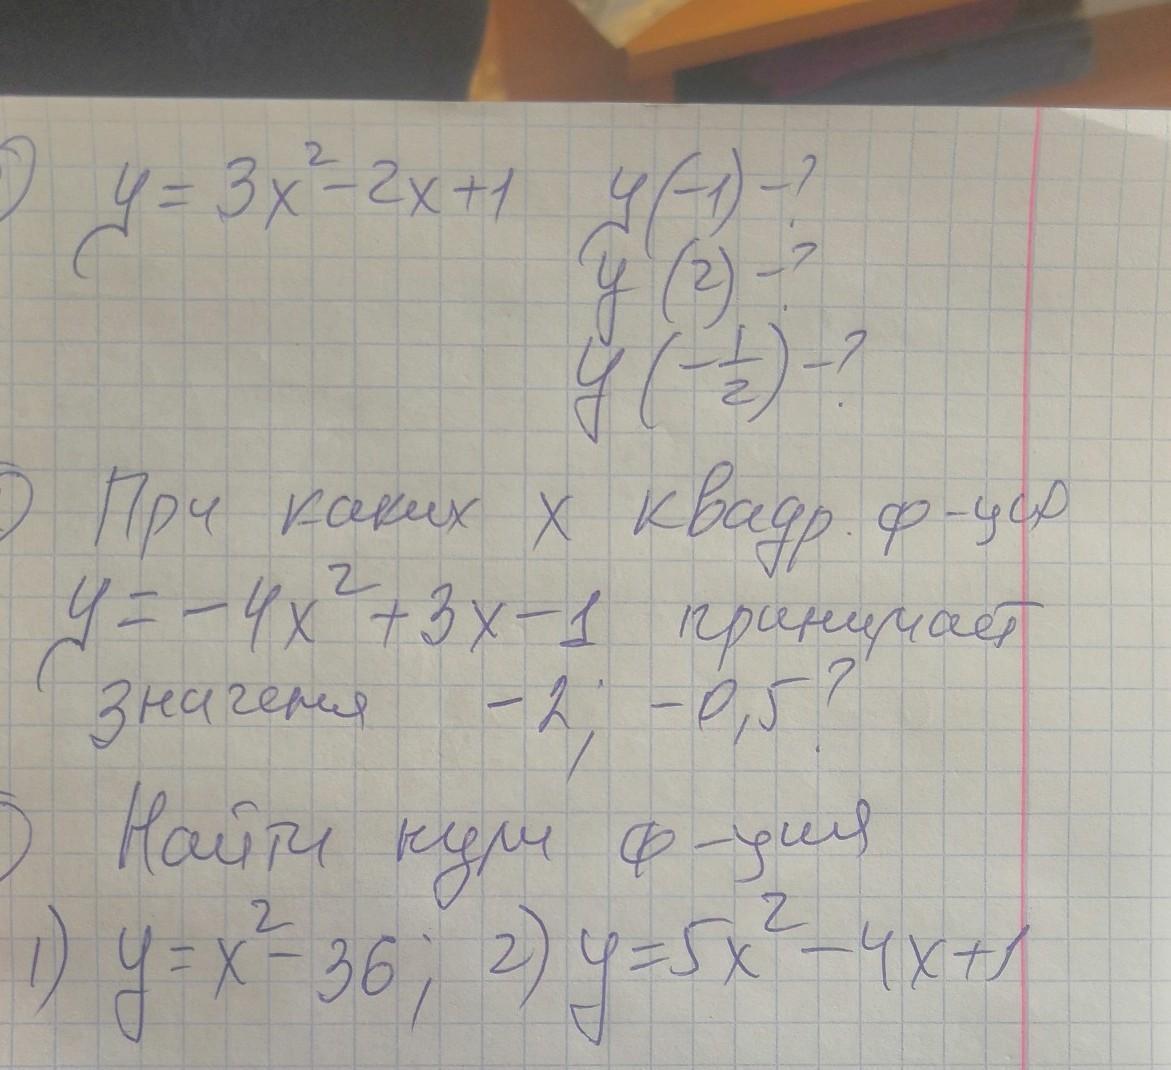 y = 3x² - 2x + 1 y(-1) - ?
y(2) - ?
y(-1/2) - ?
При каких x квадр. ф-ция
y = -4x² + 3x - 1 принимает
значения -2; -0,5?
Найти нули ф-ция
1) y = x² - 36; 2) y = 5x² - 4x + 1